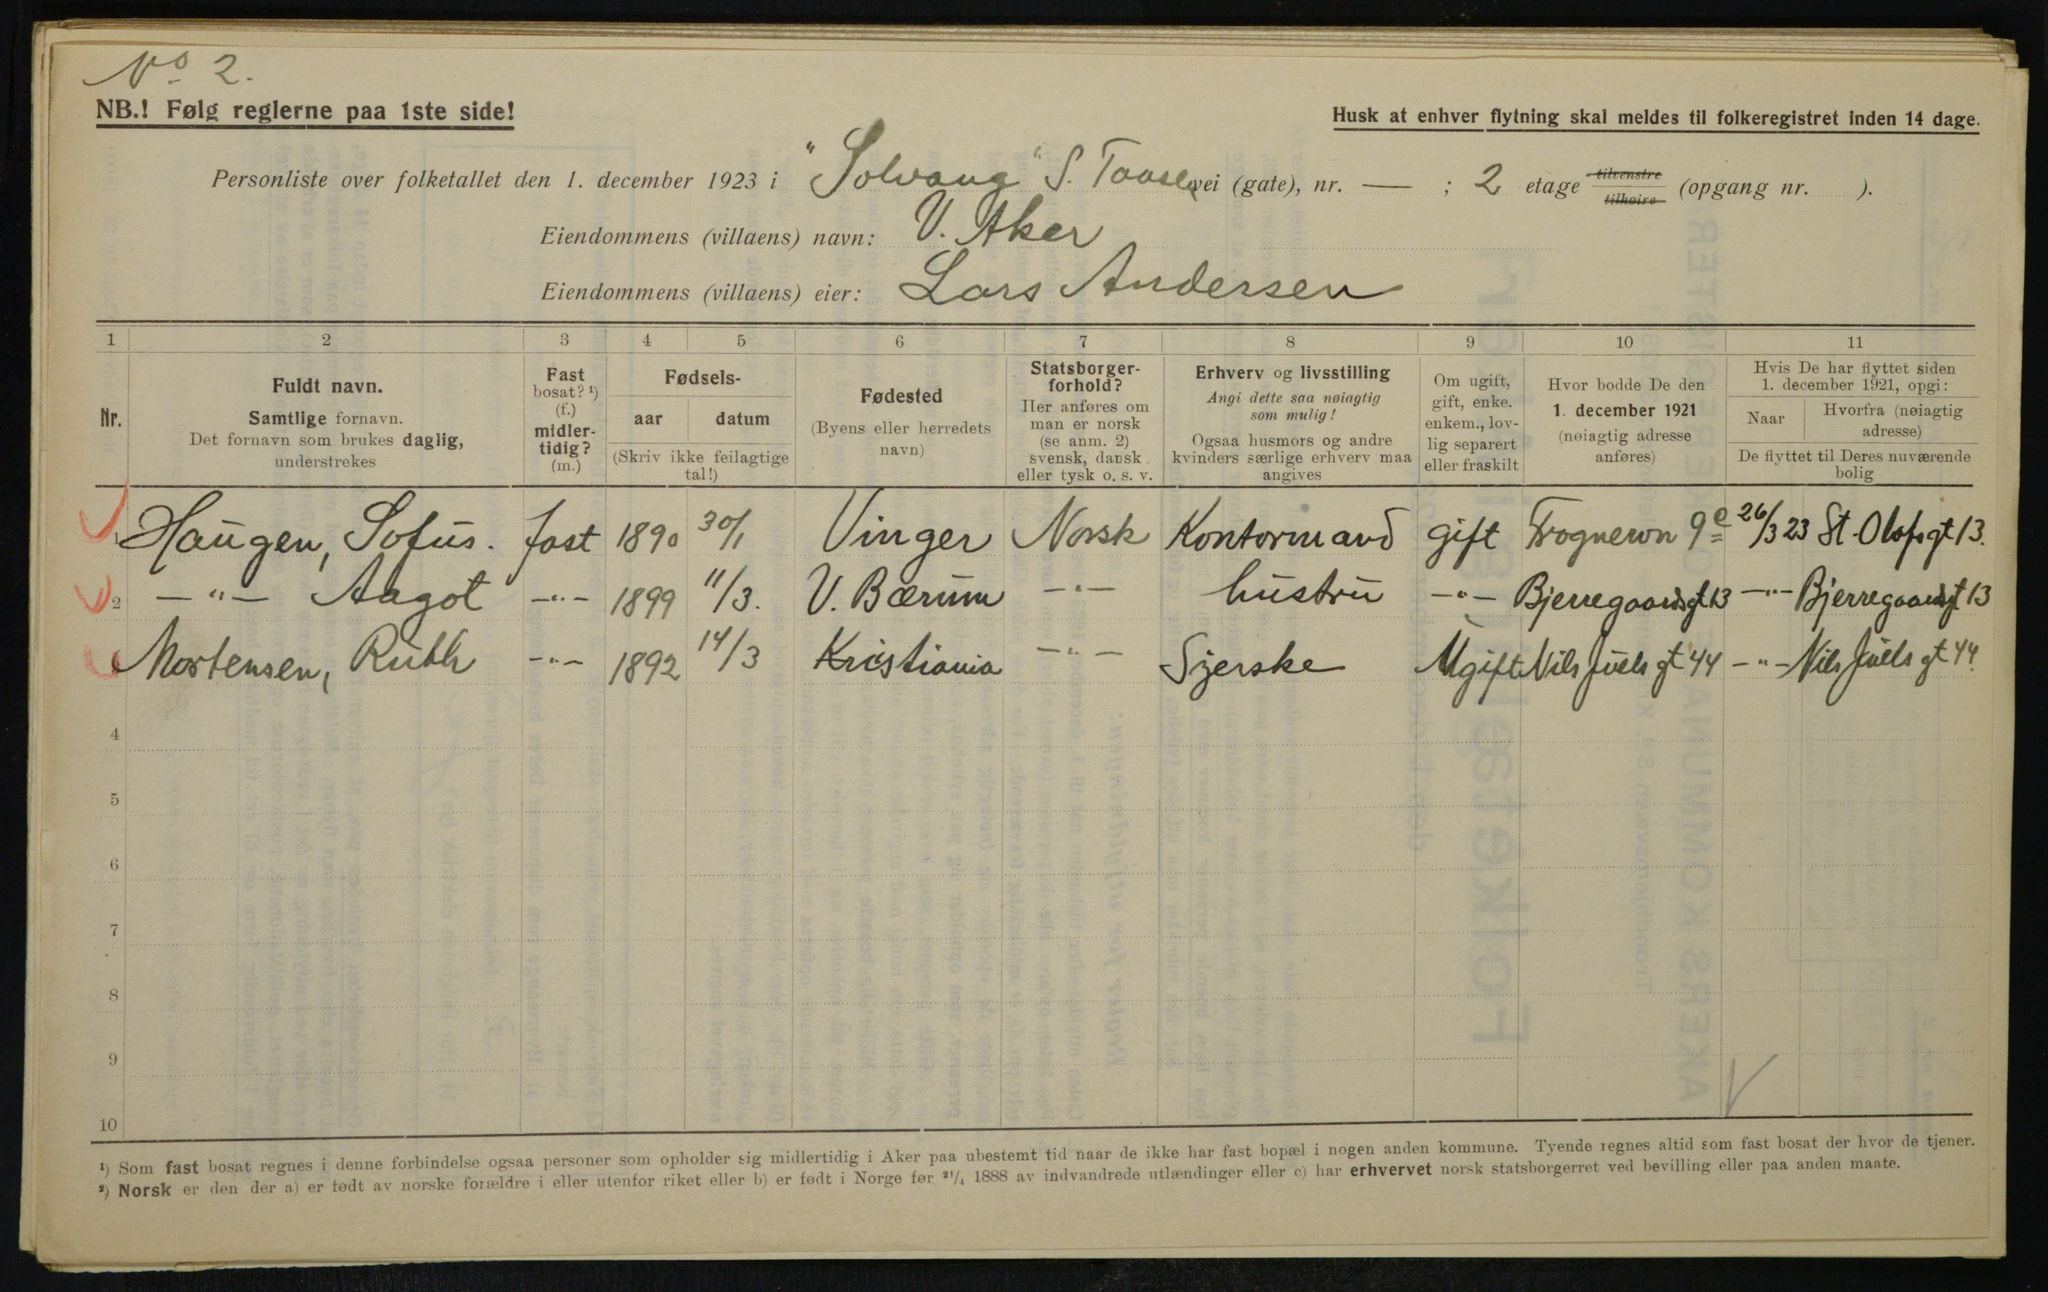 No 2.
NB.! Følg reglerne paa 1ste side!
Husk at enhver flytning skal meldes til folkeregistret inden 14 dage.
Personliste over folketallet den 1. december 1923 i "Solvang" S. Taasen vei (gate), nr. — ; 2 etage tilvenstre tilhøire (opgang nr. ).
Eiendommens (villaens) navn: V. Aker
Eiendommens (villaens) eier: Lars Andersen
1 2 3 4 5 6 7 8 9 10 11
Nr.
Fuldt navn.
Samtlige fornavn.
Det fornavn som brukes daglig,
understrekes
Fast
bosat? ¹)
(f.)
midler-
tidig?
(m.)
Fødsels-
aar datum
(Skriv ikke feilagtige
tal!)
Fødested
(Byens eller herredets
navn)
Statsborger-
forhold?
Her anføres om
man er norsk
(se anm. 2)
svensk, dansk
eller tysk o. s. v.
Erhverv og livsstilling
Angi dette saa nøiagtig
som mulig!
Ogsaa husmors og andre
kvinders særlige erhverv maa
angives
Om ugift,
gift, enke.
enkem., lov-
lig separert
eller fraskilt
Hvor bodde De den
1. december 1921
(nøiagtig adresse
anføres)
Hvis De har flyttet siden
1. december 1921, opgi:
Naar Hvorfra (nøiagtig
adresse)
De flyttet til Deres nuværende
bolig
1 Haugen, Sofus. fast 1890 30/1 Vinger Norsk Kontormand gift Frognervn 9e 26/3 23 St. Olafsgt 13.
2 —"— Aagot —"— 1899 11/3. V. Bærum —"— hustru —"— Bjerregaardsgt 13 —"— Bjerregaardsgt 13
Mortensen, Ruth —"— 1892 14/3 Kristiania —"— Syerske Ugift Nils Juels gt 44 —"— Nils Juels gt 44.
4
5
6
7
8
9
10
¹) Som fast bosat regnes i denne forbindelse ogsaa personer som opholder sig midlertidig i Aker paa ubestemt tid naar de ikke har fast bopæl i nogen anden kommune. Tyende regnes altid som fast bosat der hvor de tjener.
²) Norsk er den der a) er født av norske forældre i eller utenfor riket eller b) er født i Norge før 21/4 1888 av indvandrede utlændinger eller c) har erhvervet norsk statsborgerret ved bevilling eller paa anden maate.